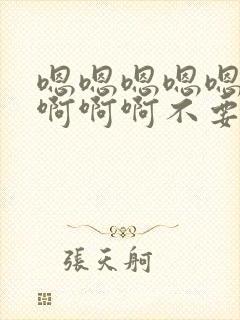 嗯嗯嗯嗯嗯
啊啊啊不要
張天舸